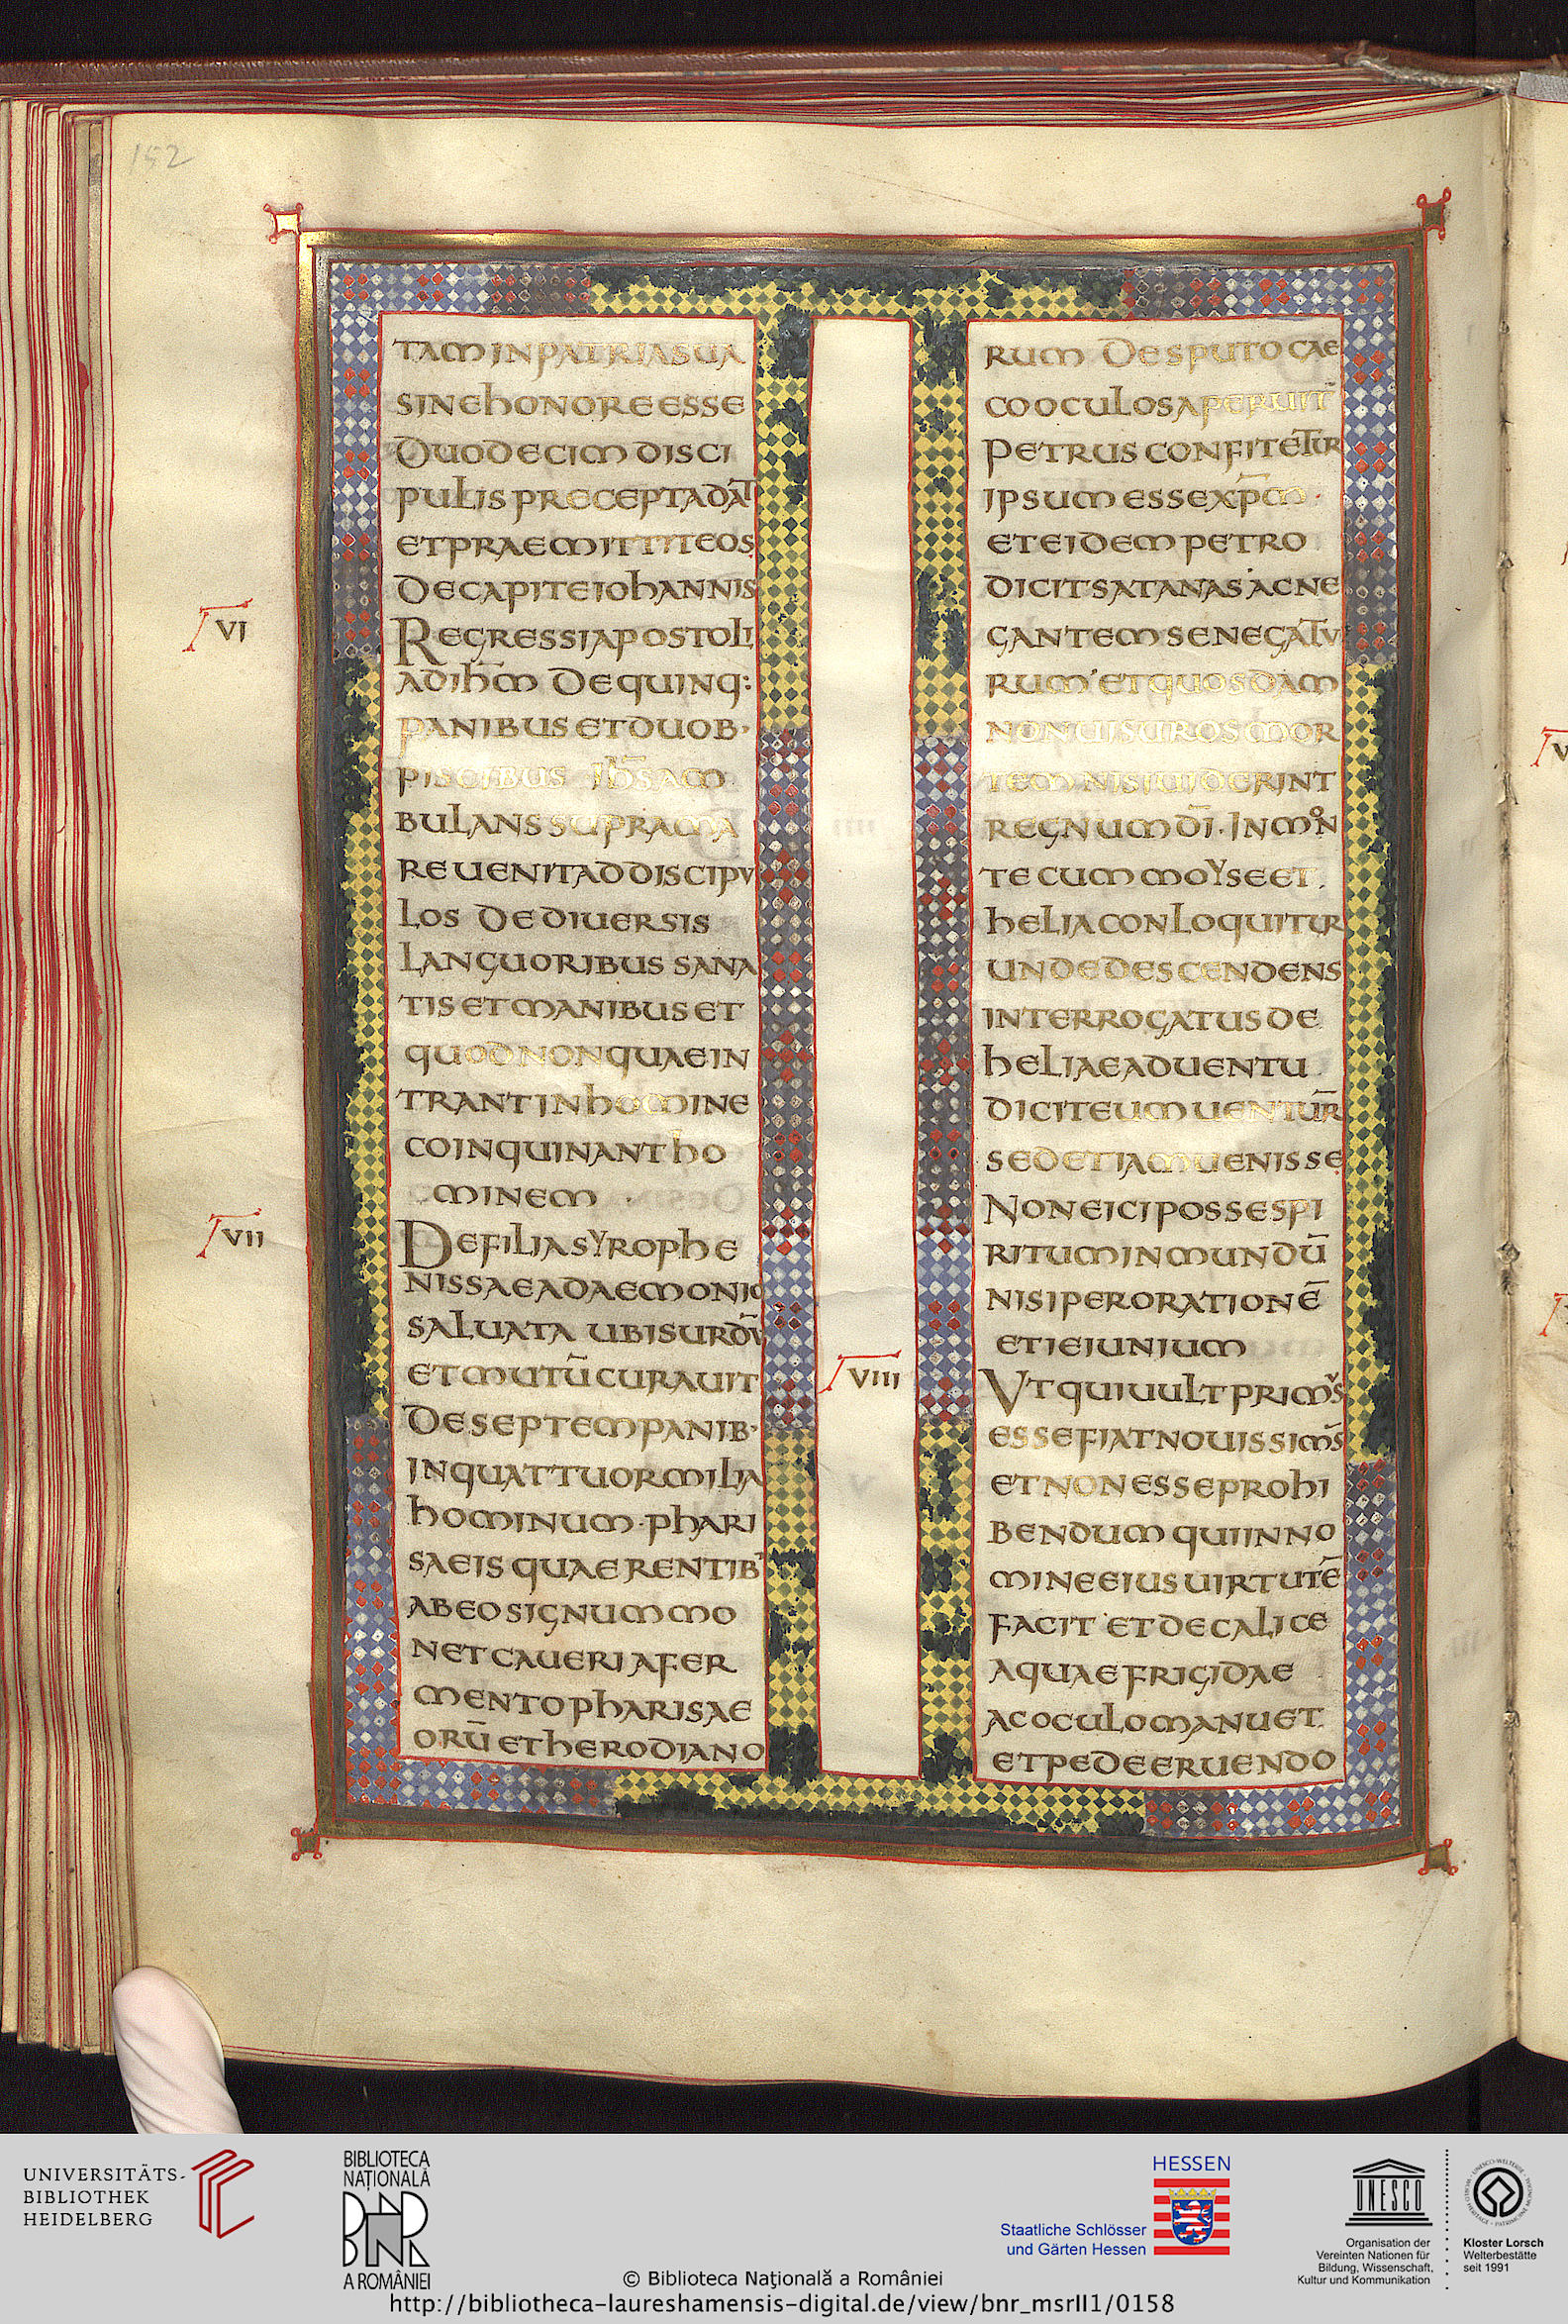 152
TAM IN PATRIA SUA
SINE HONORE ESSE
DUODECIM DISCI
PULIS PRECEPTA DAT
ET PRAEMITTIT EOS
DE CAPITE IOHANNIS
VI
REGRESSI APOSTOLI
AD IHM̄ DE QUINQ:
PANIBUS ET DUOB·
PISCIBUS IHS̄ AM
BULANS SUPRA MA
RE UENIT AD DISCIPU
LOS DE DIUERSIS
LANGUORIBUS SANA
TIS ET MANIBUS ET
QUOD NON QUAE IN
TRANT IN HOMINE
COINQUINANT HO
MINEM
VII
DE FILIA SYROPHE
NISSAE A DAEMONIO
SALUATA UBI SURDŪ
ET MUTŪ CURAUIT
DE SEPTEM PANIB·
IN QUATTUOR MILIA
HOMINUM·PHARI
SAEIS QUAERENTIB'
AB EO SIGNUM MO
NET CAUERI A FER
MENTO PHARISAE
ORŪ ET HERODIANO
RUM DE SPUTO CAE
CO OCULOS APERUIT
PETRUS CONFITETUR
IPSUM ESSE XP̄M·
ET EIDEM PETRO
DICIT SATANAS AC NE
GANTEM SE NEGATU
RUM ET QUOSDAM
NON UISUROS MOR
TEM NISI UIDERINT
REGNUM DĪ· IN MON
TE CUM MOYSE ET
HELIA CONLOQUITUR
UNDE DESCENDENS
INTERROGATUS DE
HELIAE ADUENTU
DICIT EUM UENTUR̄
SED ET IAM UENISSE
NON EICI POSSE SPI
RITUM INMUNDŪ
NISI PER ORATIONĒ
ET IEIUNIUM
VIII
UT QUI UULT PRIMUS
ESSE FIAT NOUISSIMS̄
ET NON ESSE PROHI
BENDUM QUI IN NO
MINE EIUS UIRTUTĒ
FACIT ET DE CALICE
AQUAE FRIGIDAE
AC OCULO MANU ET
ET PEDE ERUENDO
UNIVERSITÄTS-
BIBLIOTHEK
HEIDELBERG
BIBLIOTECA
NAŢIONALĂ
BNR
A ROMÂNIEI
© Biblioteca Naţională a României
http://bibliotheca-laureshamensis-digital.de/view/bnr_msrII1/0158
HESSEN
Staatliche Schlösser
und Gärten Hessen
UNESCO
Organisation der
Vereinten Nationen für
Bildung, Wissenschaft,
Kultur und Kommunikation
Kloster Lorsch
Welterbestätte
seit 1991